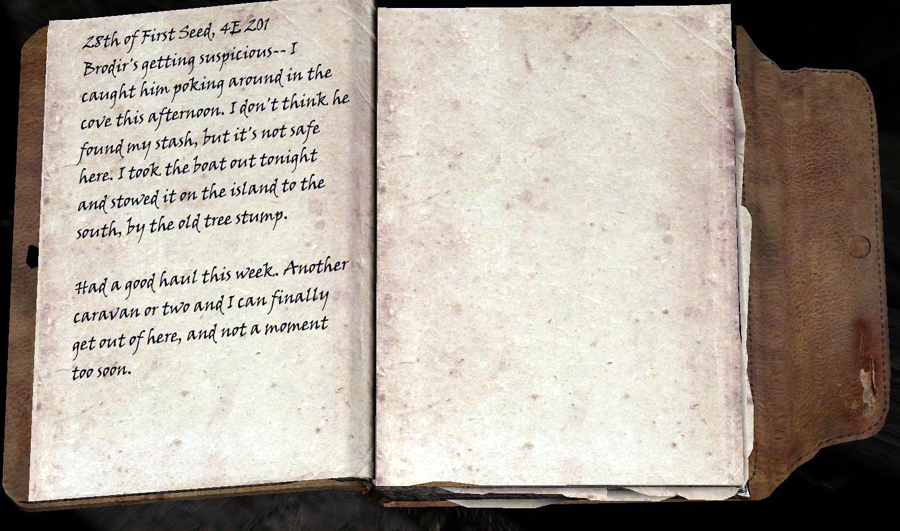 28th of First Seed, 4E 201
Brodir's getting suspicious-- I
caught him poking around in the
cove this afternoon. I don't think he
found my stash, but it's not safe
here. I took the boat out tonight
and stowed it on the island to the
south, by the old tree stump.
Had a good haul this week. Another
caravan or two and I can finally
get out of here, and not a moment
too soon.